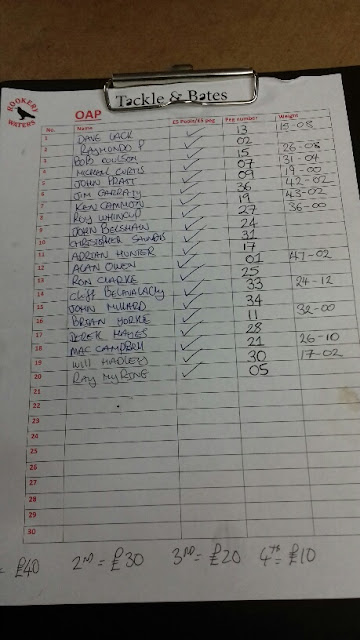 ROOKERY WATERS
Tackle & Bates
OAP
No. Name £1 Pools/£4 peg Peg number Weight
1 DAVE LACK ✓ 13
2 RAYMONDO P ✓ 02
3 BOB ✓ 15 26-08
4 MICHAEL CURTIS ✓ 07 131-04
5 JOHN PRATT ✓ 09 19-00
6 JIM GARRATY ✓ 36 42-02
7 KEN GAMMON ✓ 19 43-02
8 ROY WHINCUP ✓ 27 36-00
9 JOHN BELSHAW ✓ 24
10 CHRISTOPHER SAUNDERS ✓ 31
11 ADRIAN HUNTER ✓ 17
12 ALAN OWEN ✓ 01 47-02
13 RON CLARKE ✓ 25
14 Cliff ✓ 33 24-12
15 JOHN MILLARD ✓ 34
16 BRIAN ✓ 11 32-00
17 DEREK ✓ 28
18 MAC CAMPBELL ✓ 21 26-10
19 Will HADLEY ✓ 30 17-02
20 RAY MYRING ✓ 05
21
22
23
24
25
26
27
28
29
30
= £40 2ND = £30 3RD = £20 4TH = £10